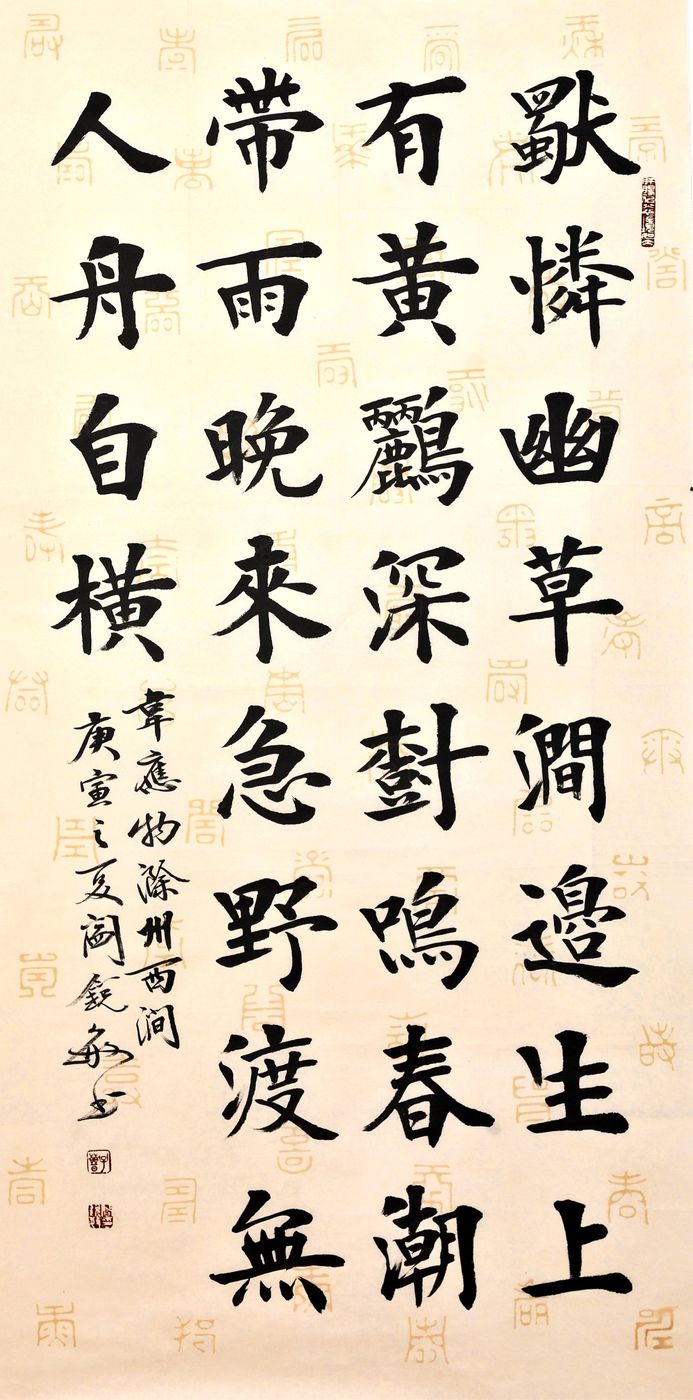 獨憐幽草澗邊生上
有黄鸝深樹鳴春潮
帶雨晚來急野渡無
人舟自横
韋應物滁州西澗
庚寅之夏閻銳敏書